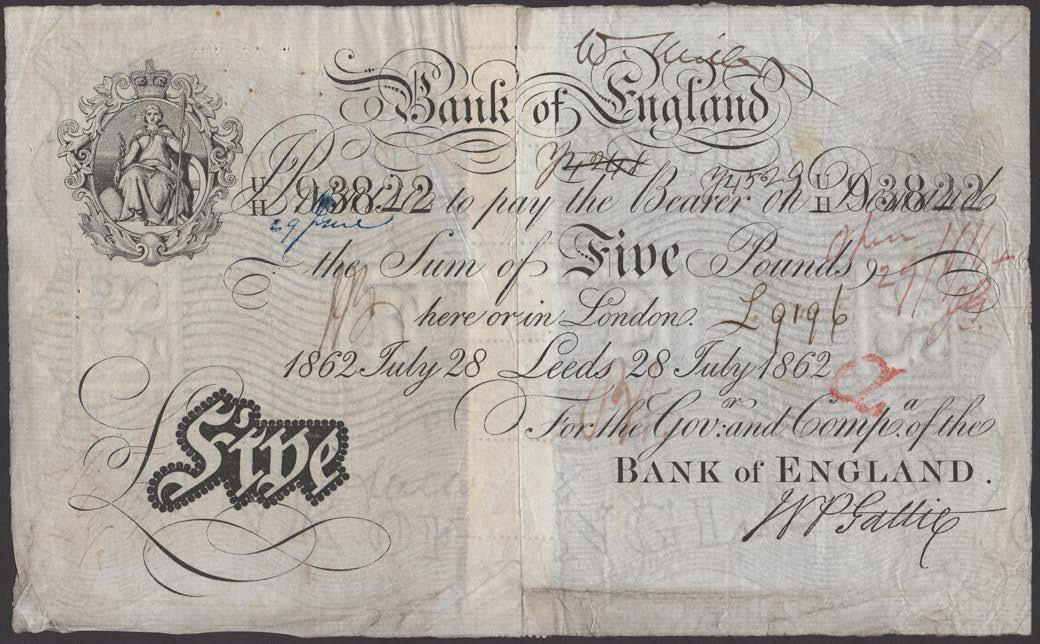 Bank of England
U/H 93822 to pay the Bearer on U/H 93822
29 June
the Sum of Five Pounds,
here or in London. L 9196
1862 July 28 Leeds 28 July 1862
For the Gov.r and Comp.a of the
£Five
BANK of ENGLAND.
W P Gattie